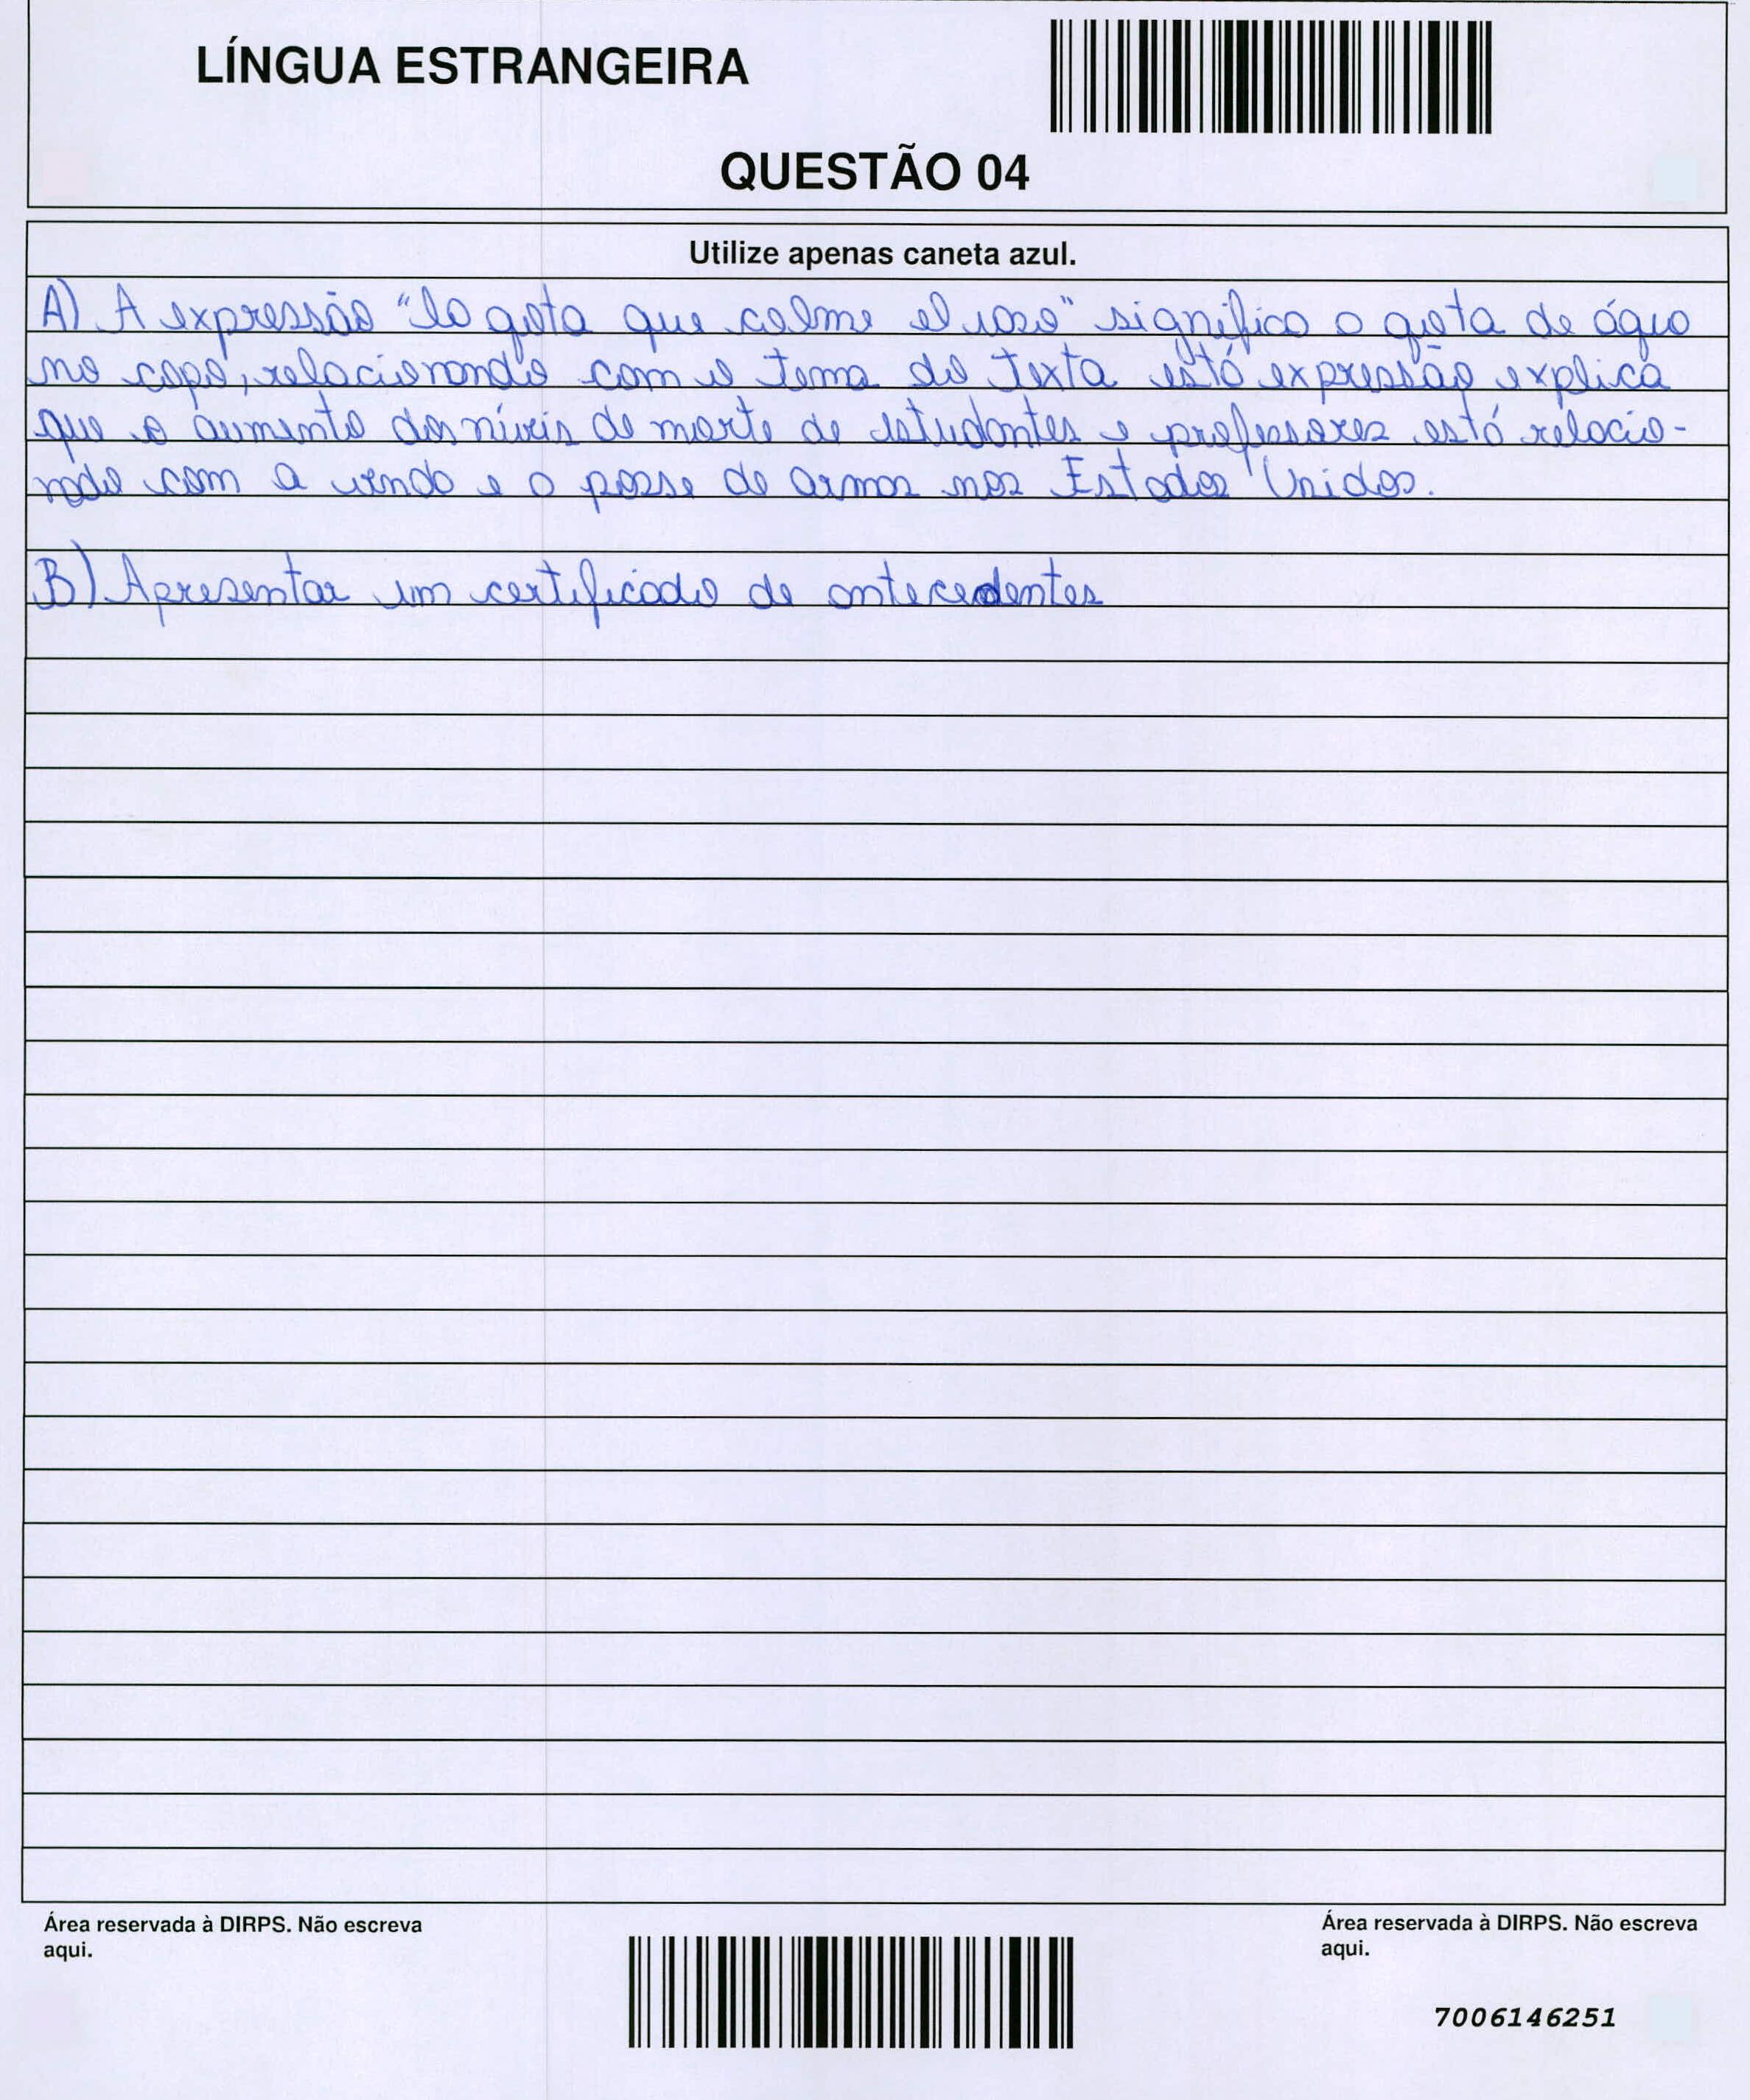 LÍNGUA ESTRANGEIRA
QUESTÃO 04
Utilize apenas caneta azul.
A) A expressão "la gota que colme el vaso" significa a gota de água
no copo, relacionando com o tema do texto está expressão explica
que o aumento dos níveis de morte de estudantes e professores está relacio-
nado com a venda e a posse de armas nos Estados Unidos.
B) Apresentar um certificado de antecedentes
Área reservada à DIRPS. Não escreva
aqui.
Área reservada à DIRPS. Não escreva
aqui.
7006146251